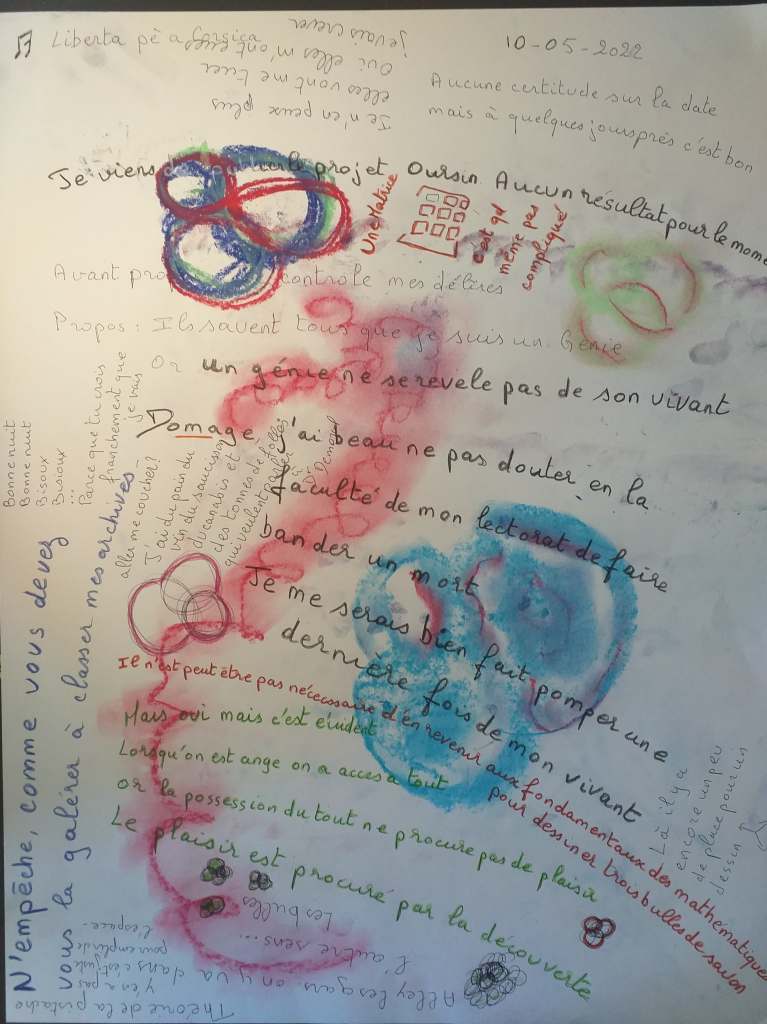 ♫ Liberta pè a Corsica
10-05-2022
Je n'en peux plus
elles vont me tuer
Oui elles m'ont eues
je vais crever
Aucune certitude sur la date
mais à quelques jours près c'est bon
Je viens projet Oursin. Aucun résultat pour le mome
Une Matrice
c'est qd
même pas
compliqué
Avant pro controle mes délires
Propos : Ils savent tous que je suis un Génie
Or un génie ne se revele pas de son vivant
Domage j'ai beau ne pas douter en la
faculté de mon lectorat de faire
bander un mort
Je me serais bien fait pomper une
dernière fois de mon vivant
Bonne nuit
Bonne nuit
Bisoux
Bisioux
...
Parce que tu crois
franchement que
je vais
aller me coucher?
J'ai du pain du
vin du saucisson
du canabis et
des tonnes de folles
qui veulent parler
à
Dr Demond
Il n'est peut être pas nécecessaire d'en revenir aux fondamentaux des mathématiques
pour dessiner trois bulles de savon
Mais oui mais c'est évident
Lorsqu'on est ange on a acces a tout
or la possession du tout ne procure pas de plaisir
Le plaisir est procuré par la découverte
Là il y a
encore un peu
de place pour un
dessin
N'empêche, comme vous devez
vous la galérer à classer mes archives
Les bulles
Alley les gars on y va dans
l'autre sens...
Théorie de la pistache
y'en a pas
c'est juste
pour emplir de
l'espace